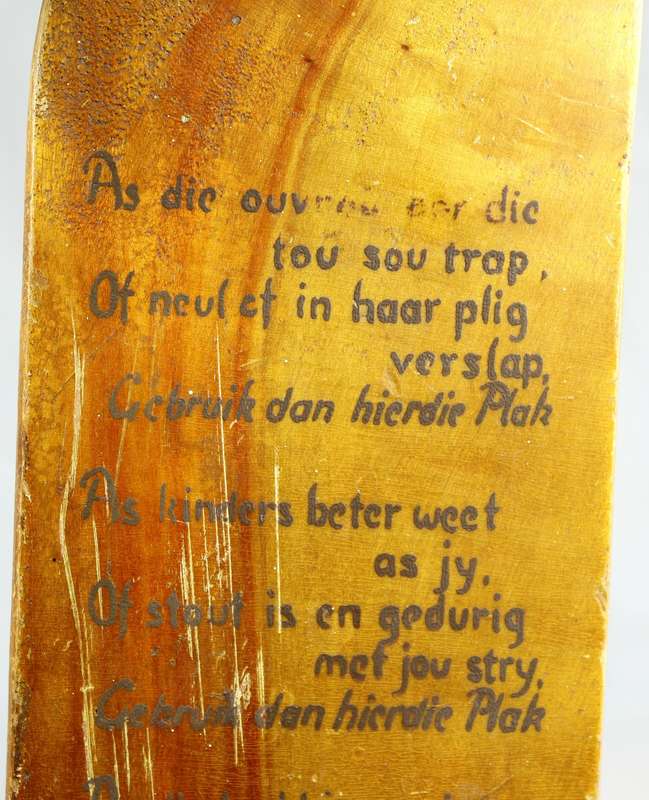 As die ouvrou oor die
tou sou trap,
Of neul et in haar plig
verslap,
Gebruik dan hierdie Plak
As kinders beter weet
as jy,
Of stout is en gedurig
met jou stry,
Gebruik dan hierdie Plak